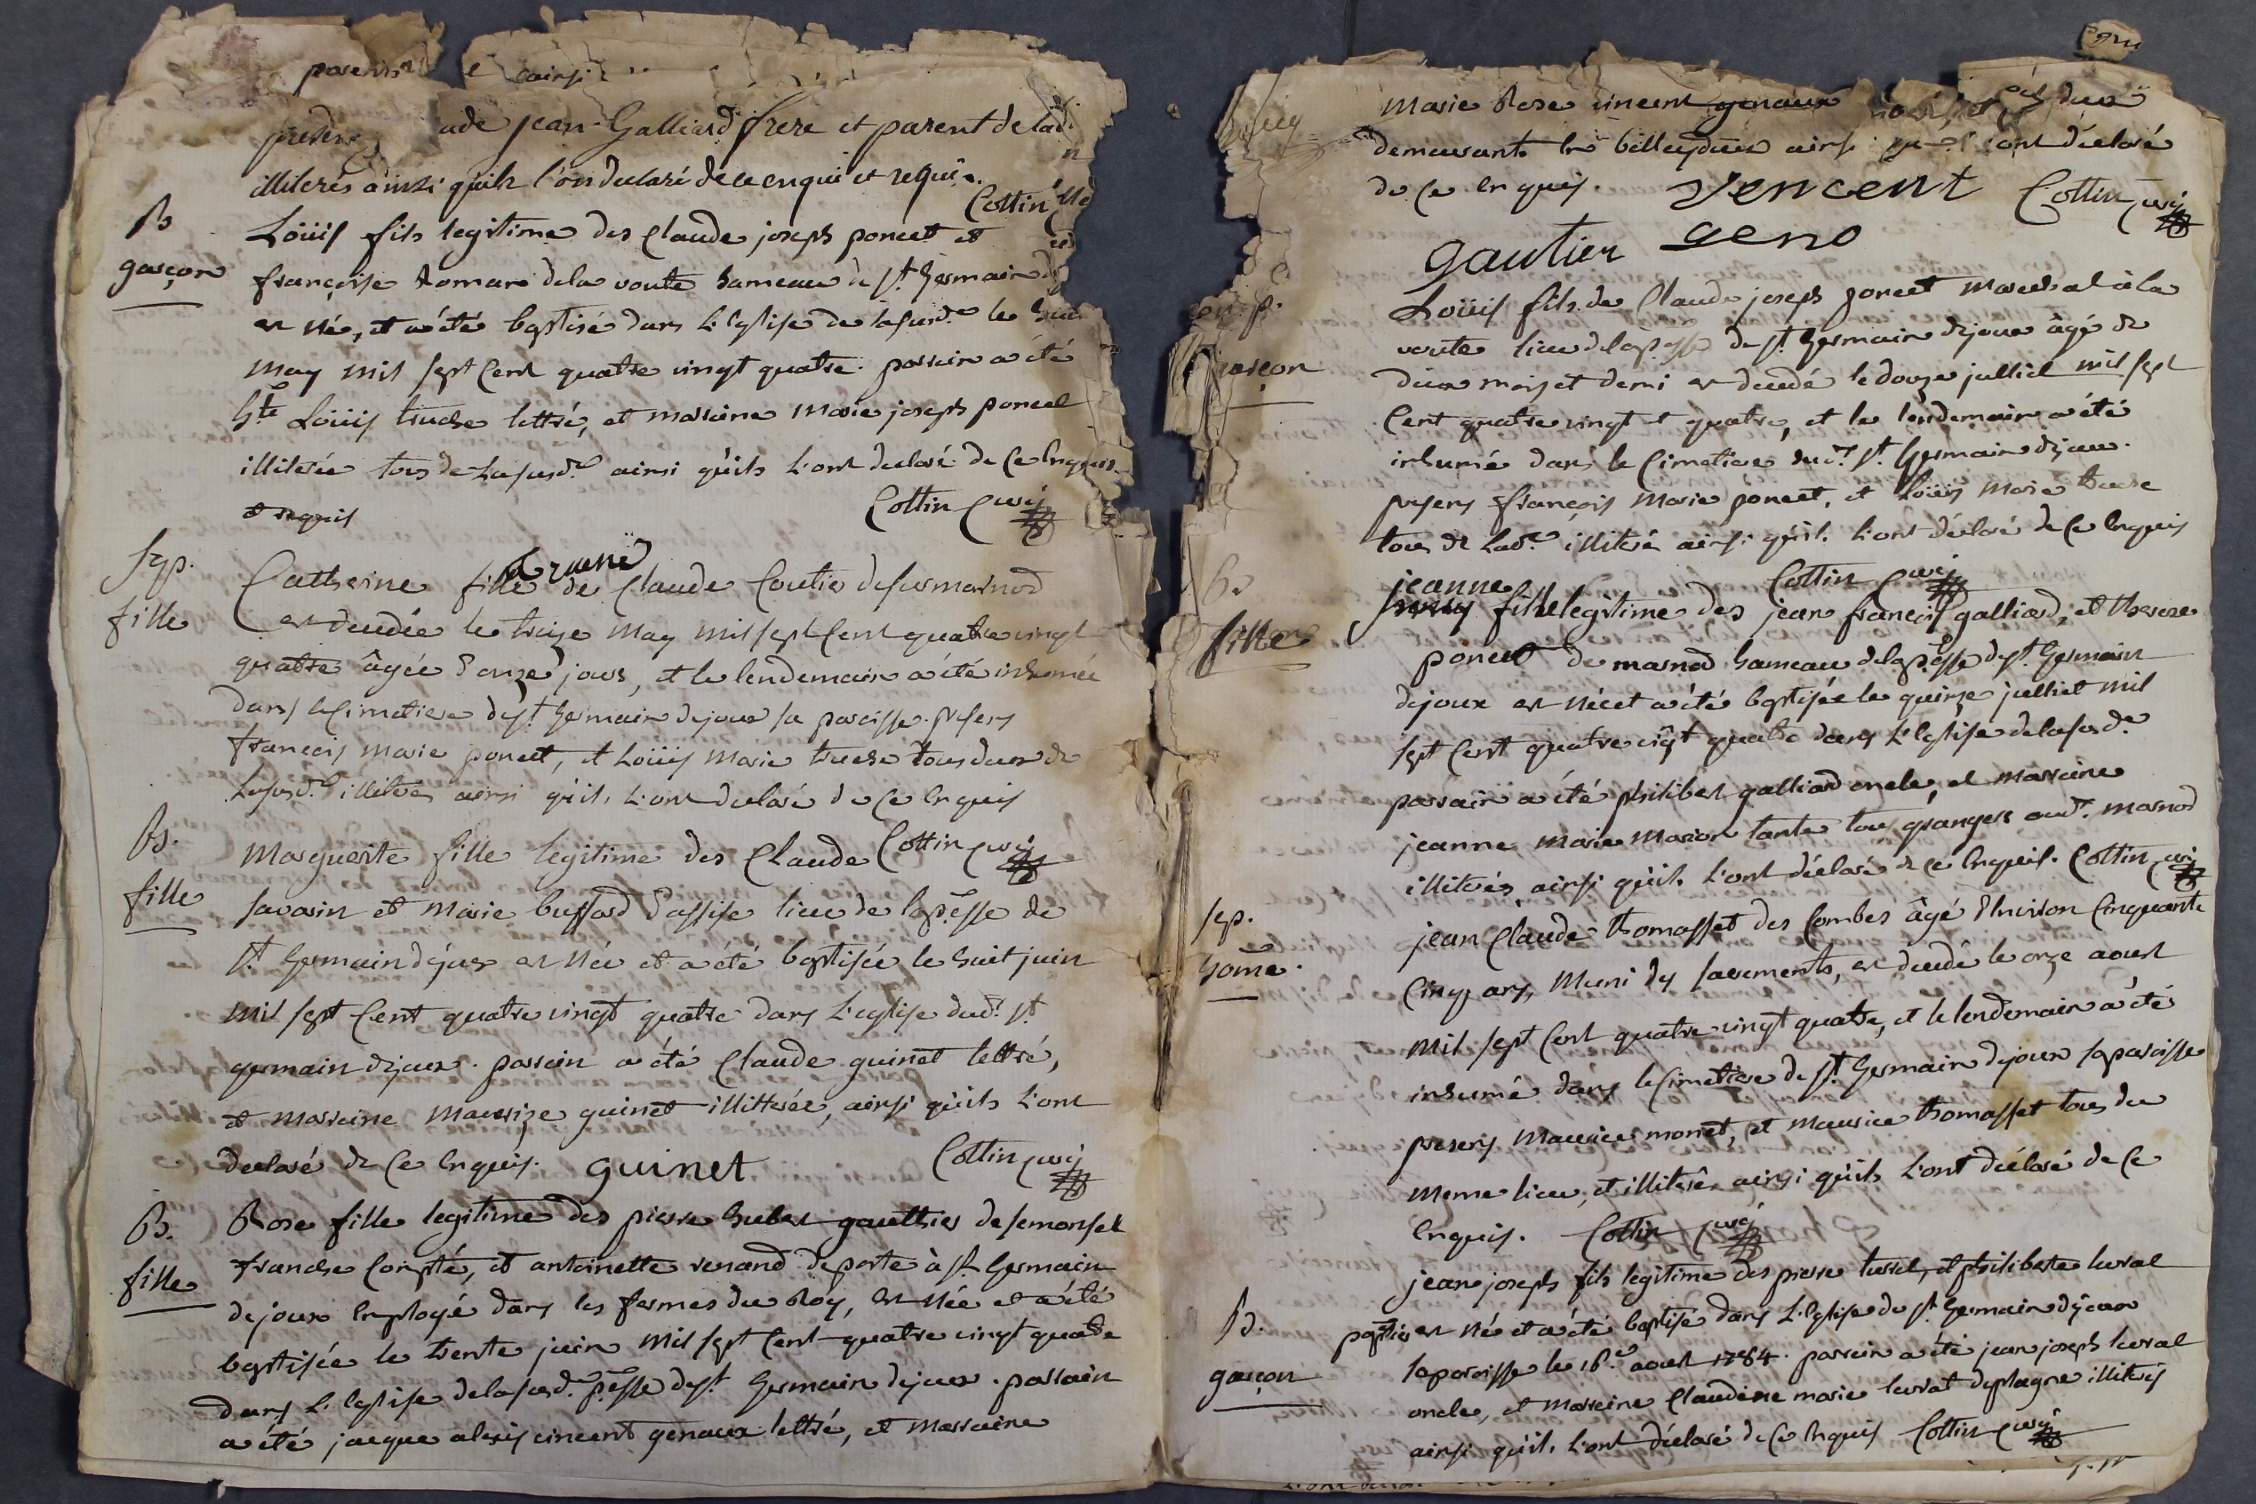 ainsi
jean Galliard frere et parent de lad.
illiterés ainsi qu'ils l'on declaré de ce enquis et requis.
Collin
B
garçon
Loüis fils legitime des Claude joseph poncet et
françoise Romand de la voute hameau de st. Germain
est né, et a été baptisé dans l'eglise de lasusd.e le
may mil sept cent quatre vingt quatre. parrain a été
Loüis truche lettré, et marraine marie joseph poncet
illiterée tous de Lasusd.e ainsi qu'ils l'ont declaré de ce enquis
et requis
Collin curé
Sep.
fille
Catherine fille de Claude Coutier desurmarnod
est decedée le treize may mil sept cent quatre vingt
quatre âgée d'onze jours, et le lendemain a été inhumée
dans le cimetiere de st. Germain dejoux sa paroisse. presens
françois marie poncet, et Loüis marie truche tous deux de
Lasusd.e illiterés ainsi qu'ils l'ont declaré de ce enquis
Collin curé
B.
fille
Marguerite fille legitime des Claude
savarin et marie buffard d'assise lieu de la p.esse de
st. Germain dejoux est née et a été baptisée le huit juin
mil sept cent quatre vingt quatre dans l'eglise dud. st.
germain dejoux. parrain a été Claude guinet lettré,
et marraine guinet illitterée, ainsi qu'ils l'ont
declaré de ce enquis. guinet
Collin curé
B.
fille
Rose fille legitime des pierre hubert gauthier de
franche Compté, et antoinette renand de porte à st. Germain
dejoux Employé dans les fermes du Roy, est née et a été
baptisée le trente juin mil sept cent quatre vingt quatre
dans l'Eglise de lasusd.e p.esse de st. Germain dejoux. parrain
a été jacque alexis vincent genaux lettré, et marraine
marie Rose vincent genaux
demeurants ainsi ont déclaré
de ce enquis. vencent Collin curé
gautier geno
garçon
Loüis fils de Claude joseph poncet marechal à la
voute lieu de la p.esse de st. Germain dejoux âgé de
deux mois et demi est decedé le douze julliet mil sept
cent quatre vingt quatre, et le lendemain a été
inhumé dans le cimetiere dud. st. Germain dejoux.
presens françois marie poncet, et Loüis marie truche
tous de lad.e illiterés ainsi qu'ils l'ont déclaré de ce enquis
Collin curé
B.
fille
jeanne
fille legitime des jean françois galliard, et therese
poncet de marnod hameau de la p.esse de st. Germain
dejoux est née et a été baptisée le quinze julliet mil
sept cent quatre vigt quatre dans l'Eglise de lasusd.e
parrain a été philibert galliard oncle, et marraine
jeanne marie marion tante tous grangers aud. marnod
illiterés ainsi qu'ils l'ont déclaré de ce enquis. Collin curé
sep.
home.
jean Claude thomasset des Combes âgé d'Environ Cinquante
Cinq ans, Muni des sacrements, est decedé le onze aoust
mil sept cent quatre-vingt quatre, et le lendemain a été
inhumé dans le cimetiere de st. Germain dejoux sa paroisse
presens maurice monet, et maurice thomasset tous du
meme lieu, et illiterés ainsi qu'ils l'ont déclaré de ce
enquis. Collin curé
B.
garçon
jean joseph fils legitime des pierre turrel, et philiberte
est né et a été baptisé dans l'Eglise de st. Germain dejoux
sa paroisse le 16.e aoust 1784. parrain a été jean joseph
oncle, et marraine Claudine marie illiterés
ainsi qu'ils l'ont déclaré de ce enquis Collin curé